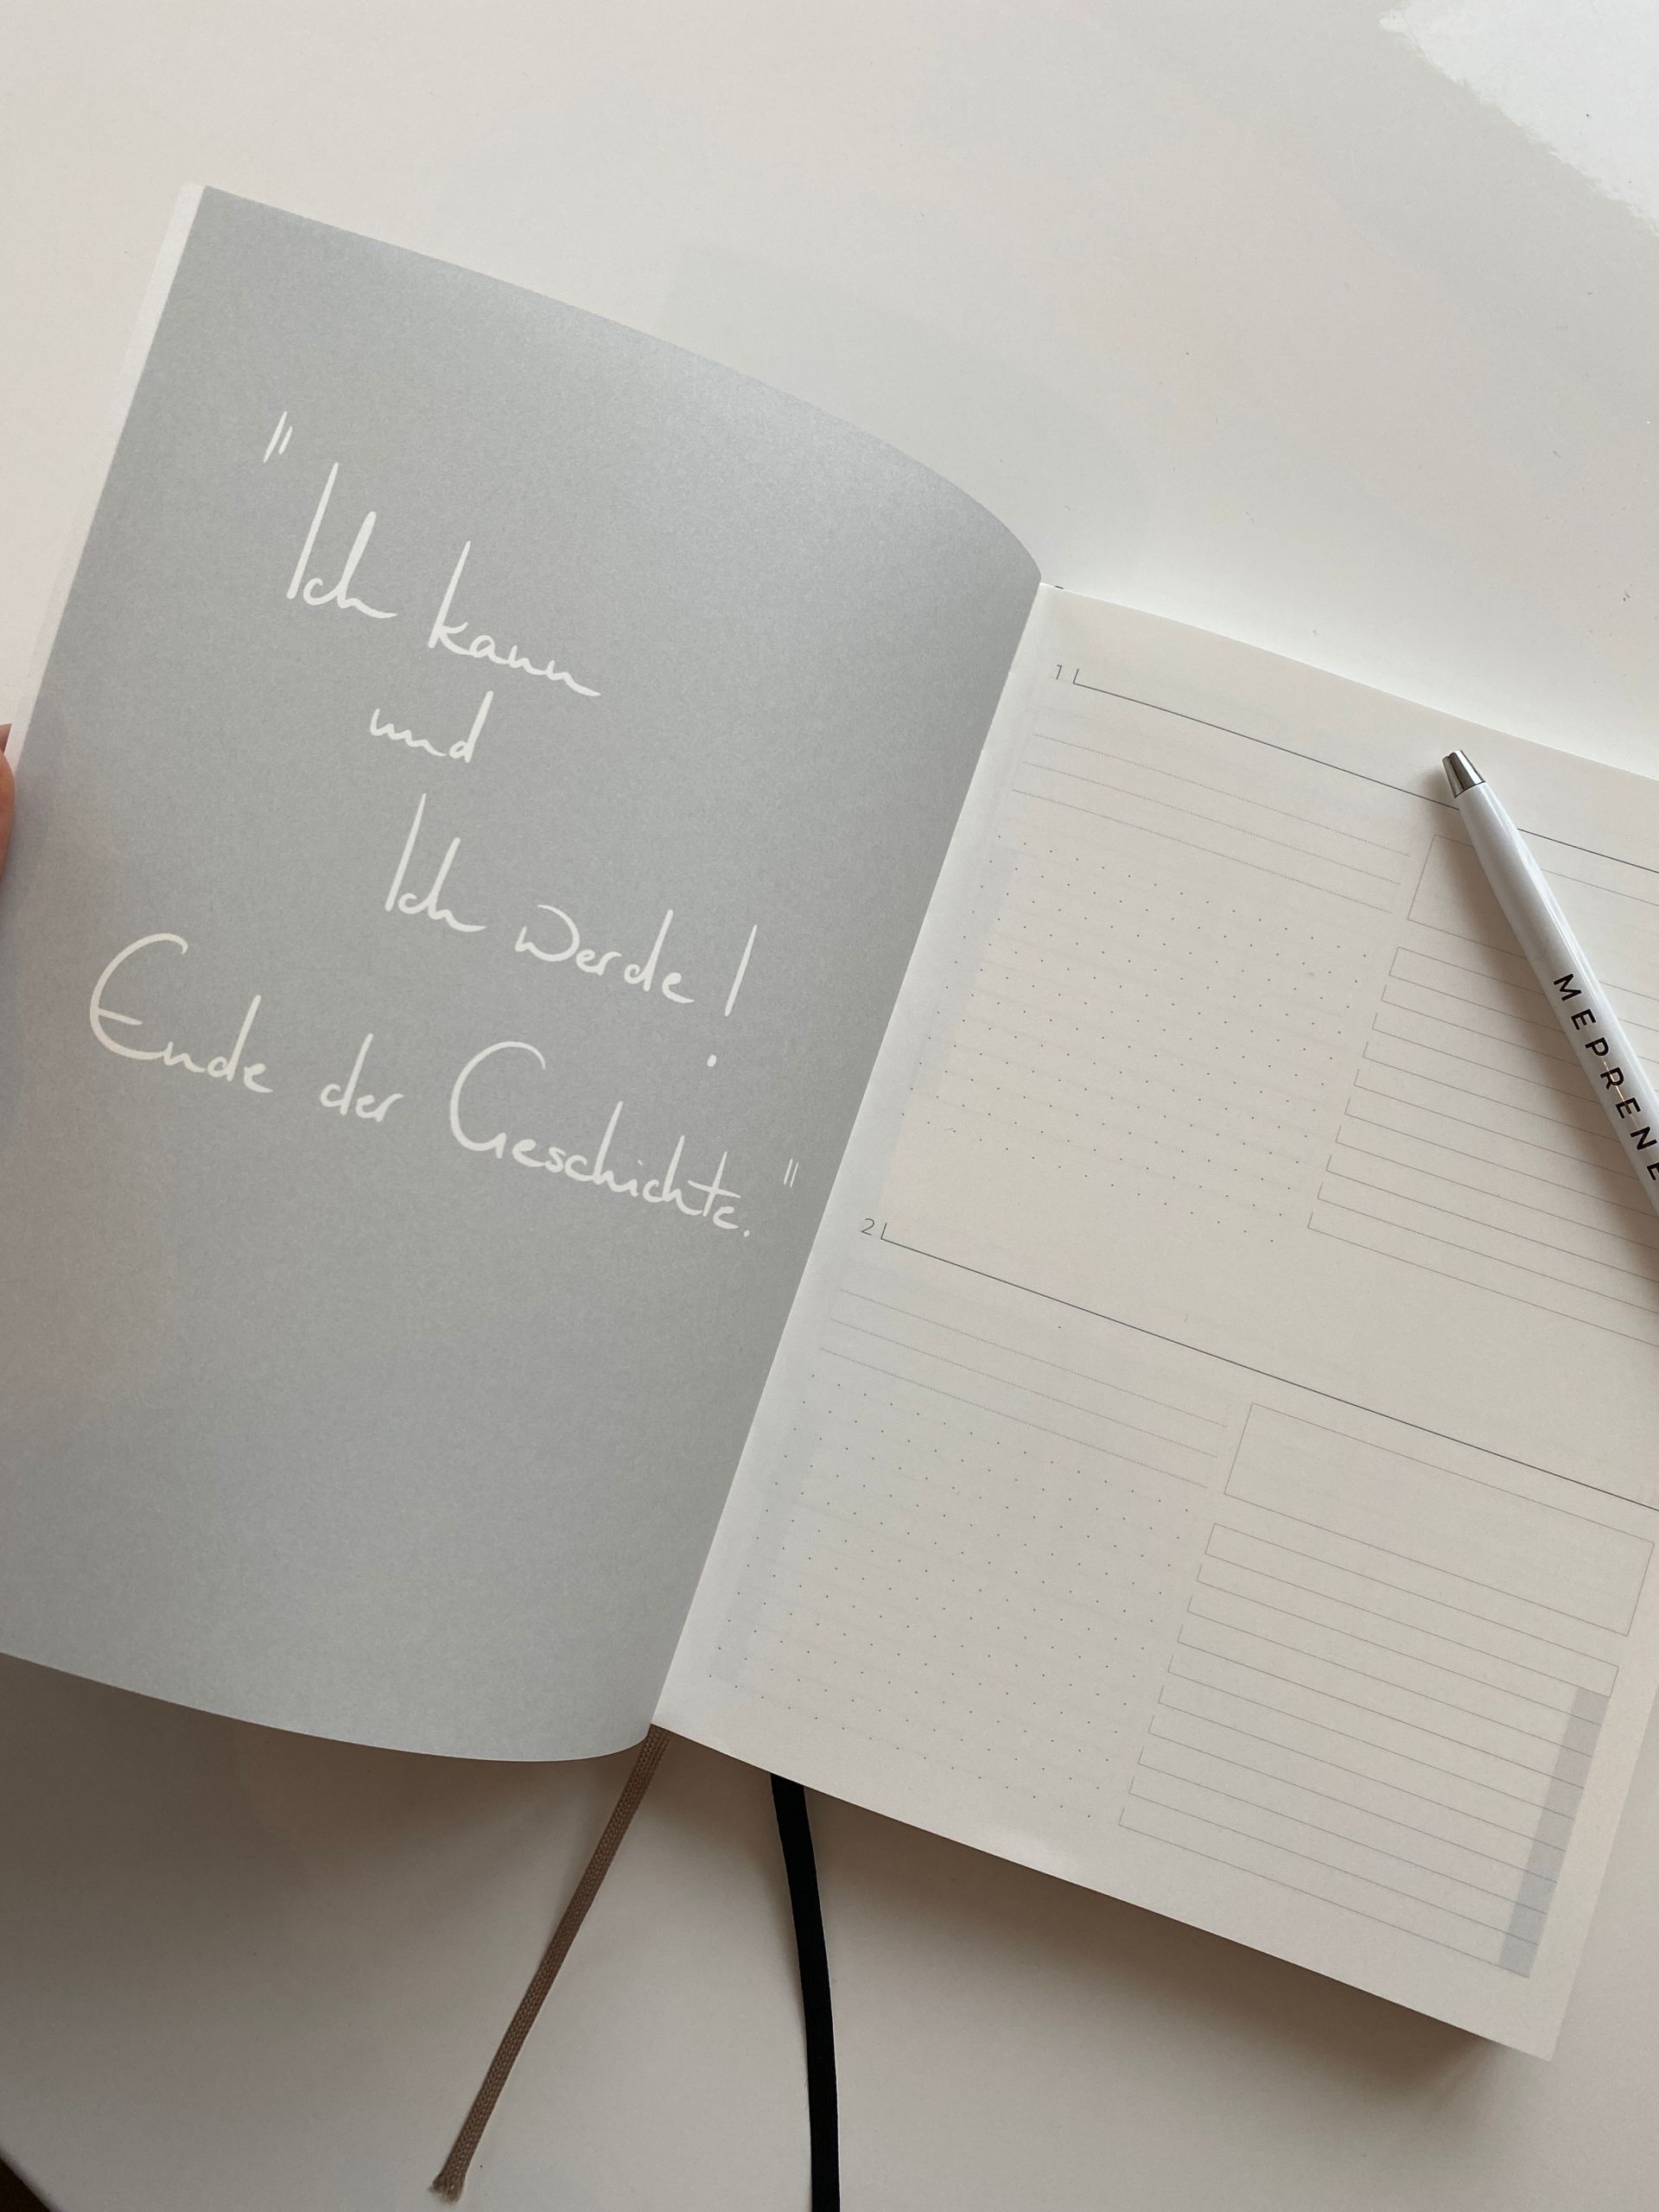 "Ich kann
und
Ich werde!
Ende der Geschichte."
1
2
MEPRENE